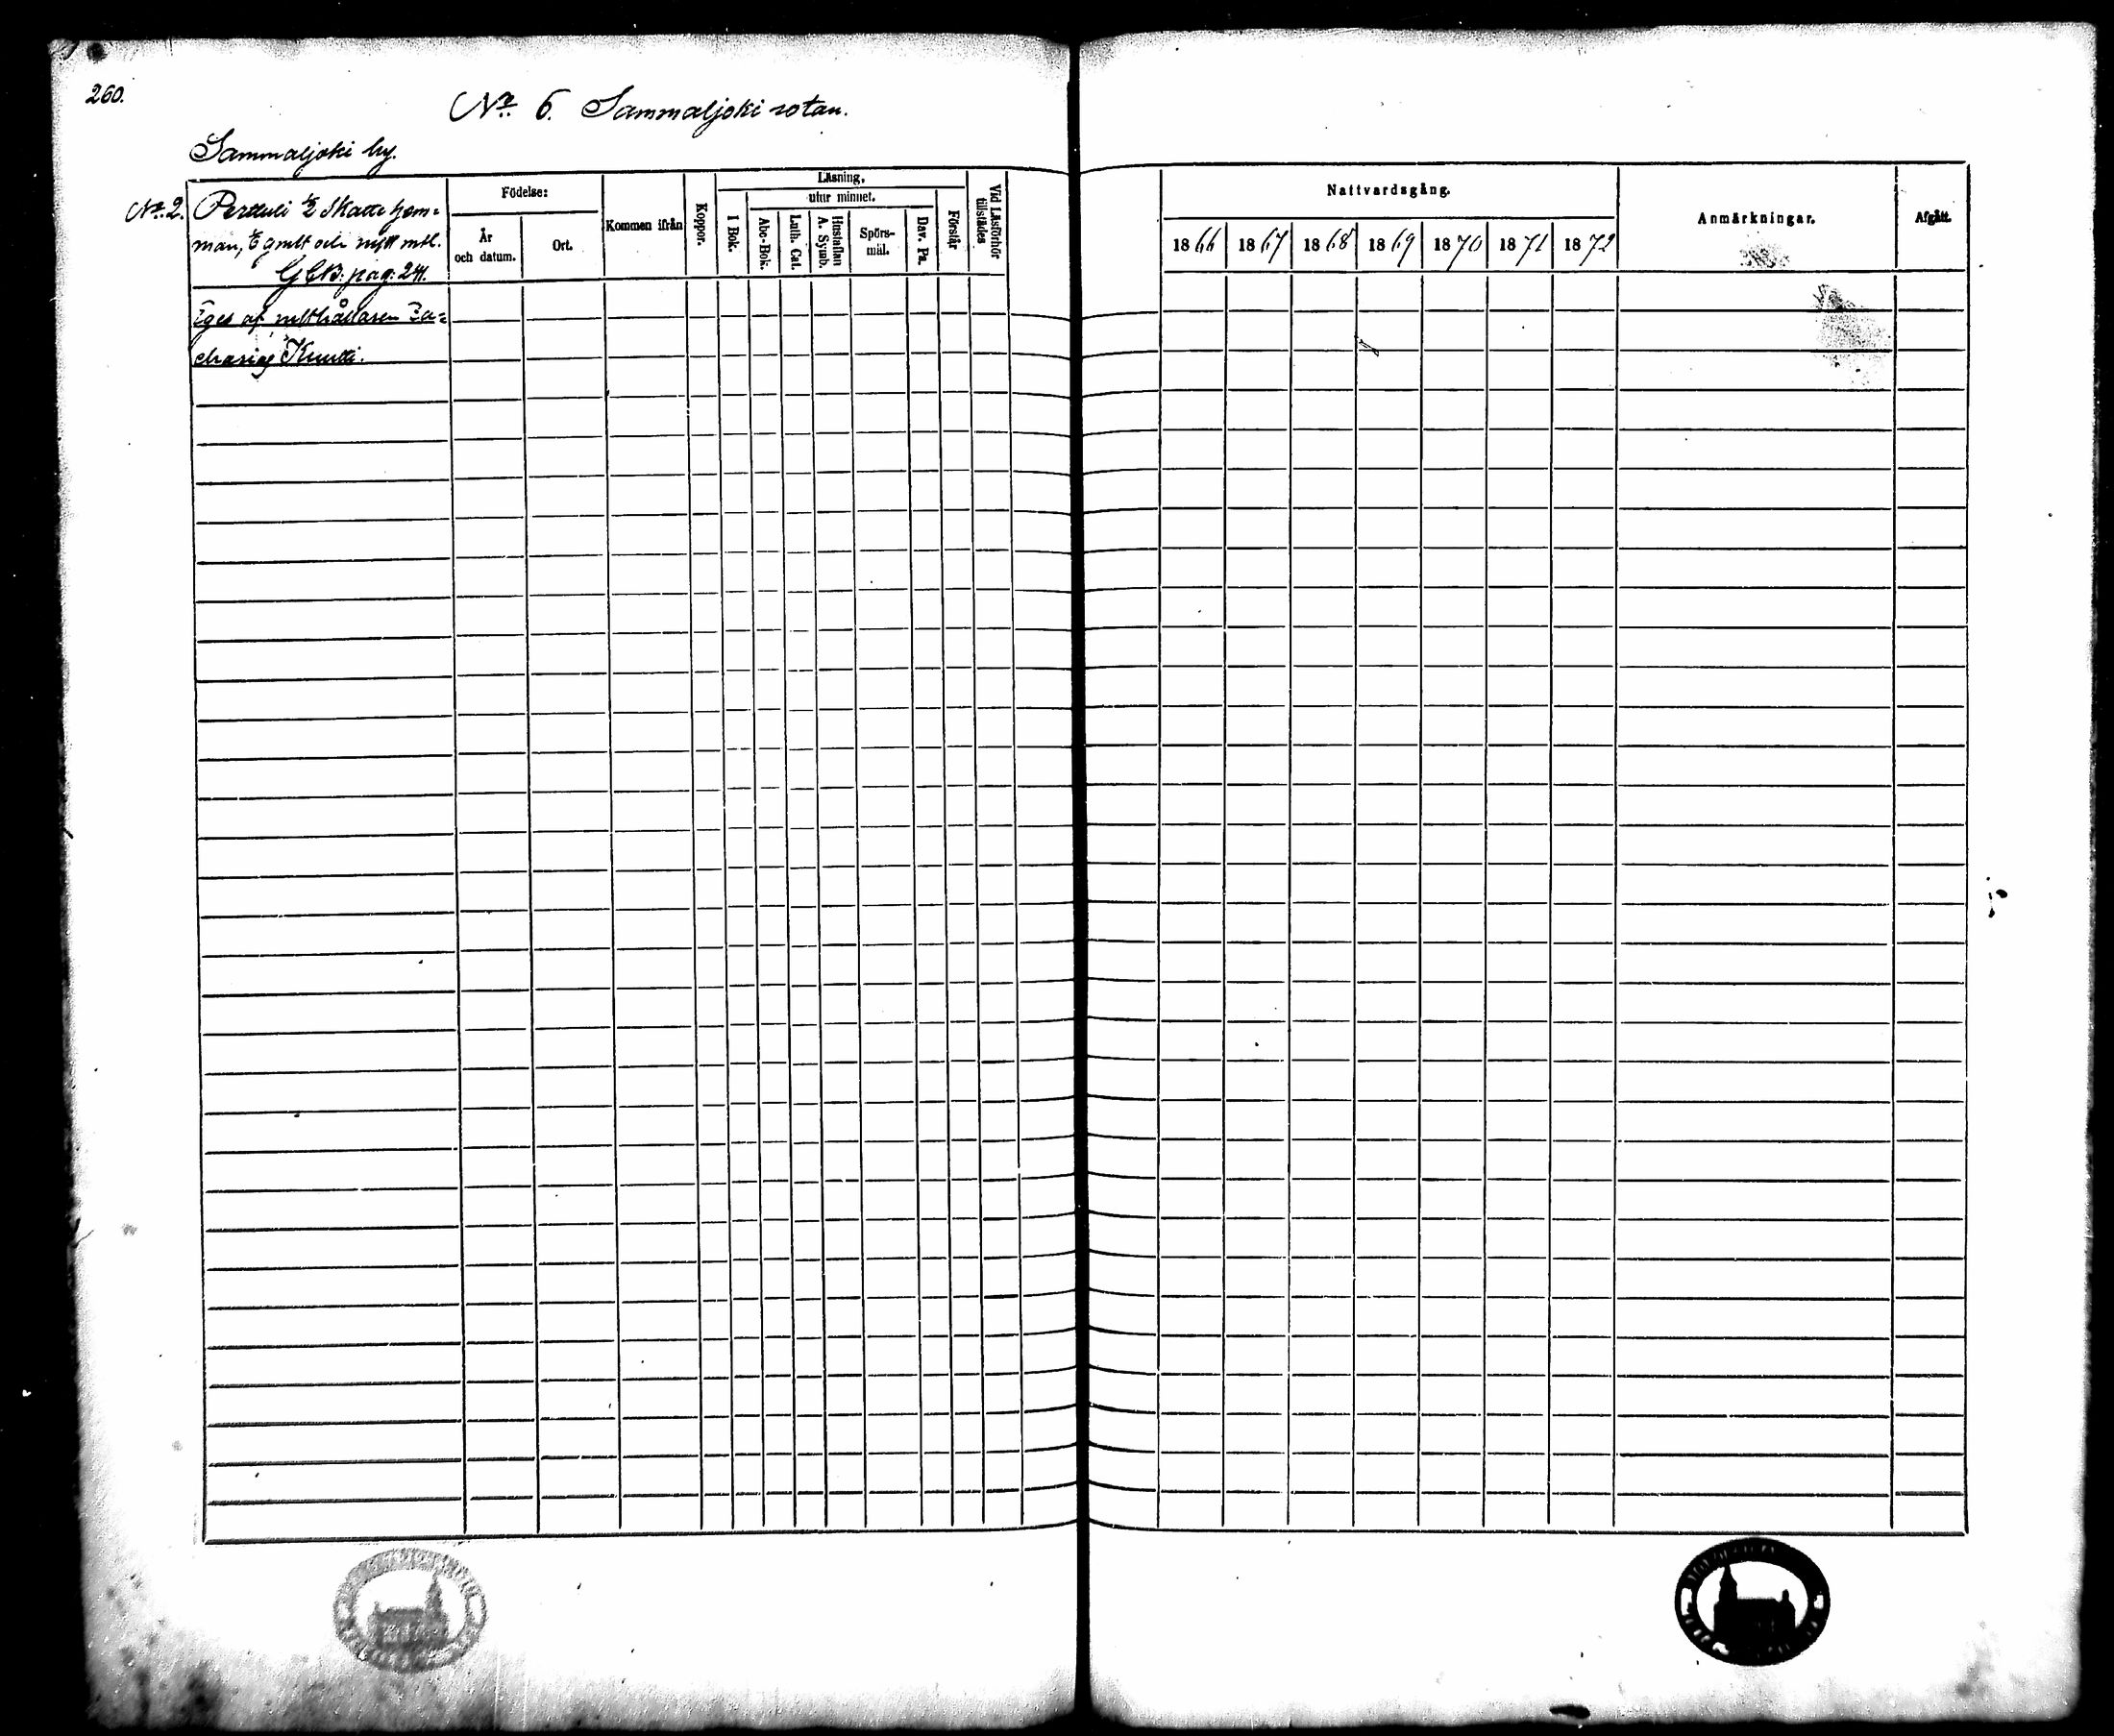 260.
No 6. Sammaljoki rotan.
Sammaljoki by.
No 2. Perttuli Skatte hem-
man, gmlt och nytt mtl.
G C B. pag. 241.
Eges af rusthållaren Za-
charias Knutti.
Födelse:
År
och datum.
Ort.
Kommen ifrån
Koppor.
Läsning.
utur minnet.
I Bok.
Abc-Bok.
Luth. Cat.
Hustaflan
A. Symb.
Spörs-
mål.
Dav. Ps.
Förstår
Vid Läsförhör
tillstädes
Nattvardsgång.
1866 1867 1868 1869 1870 1871 1872
Anmärkningar.
Afgått.